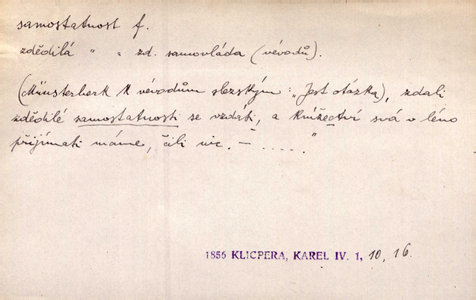 samostatnost f.
zdědilá " " zd. samovláda (vévodů).
(Münsterberk k vévodům slezským: „Jest otázka), zdali
zdědilé samostatnosti se vzdáti, a knížectví svá v léno
přijímati máme, čili nic. – ..... "
1856 KLICPERA, KAREL IV. 1, 10, 16.